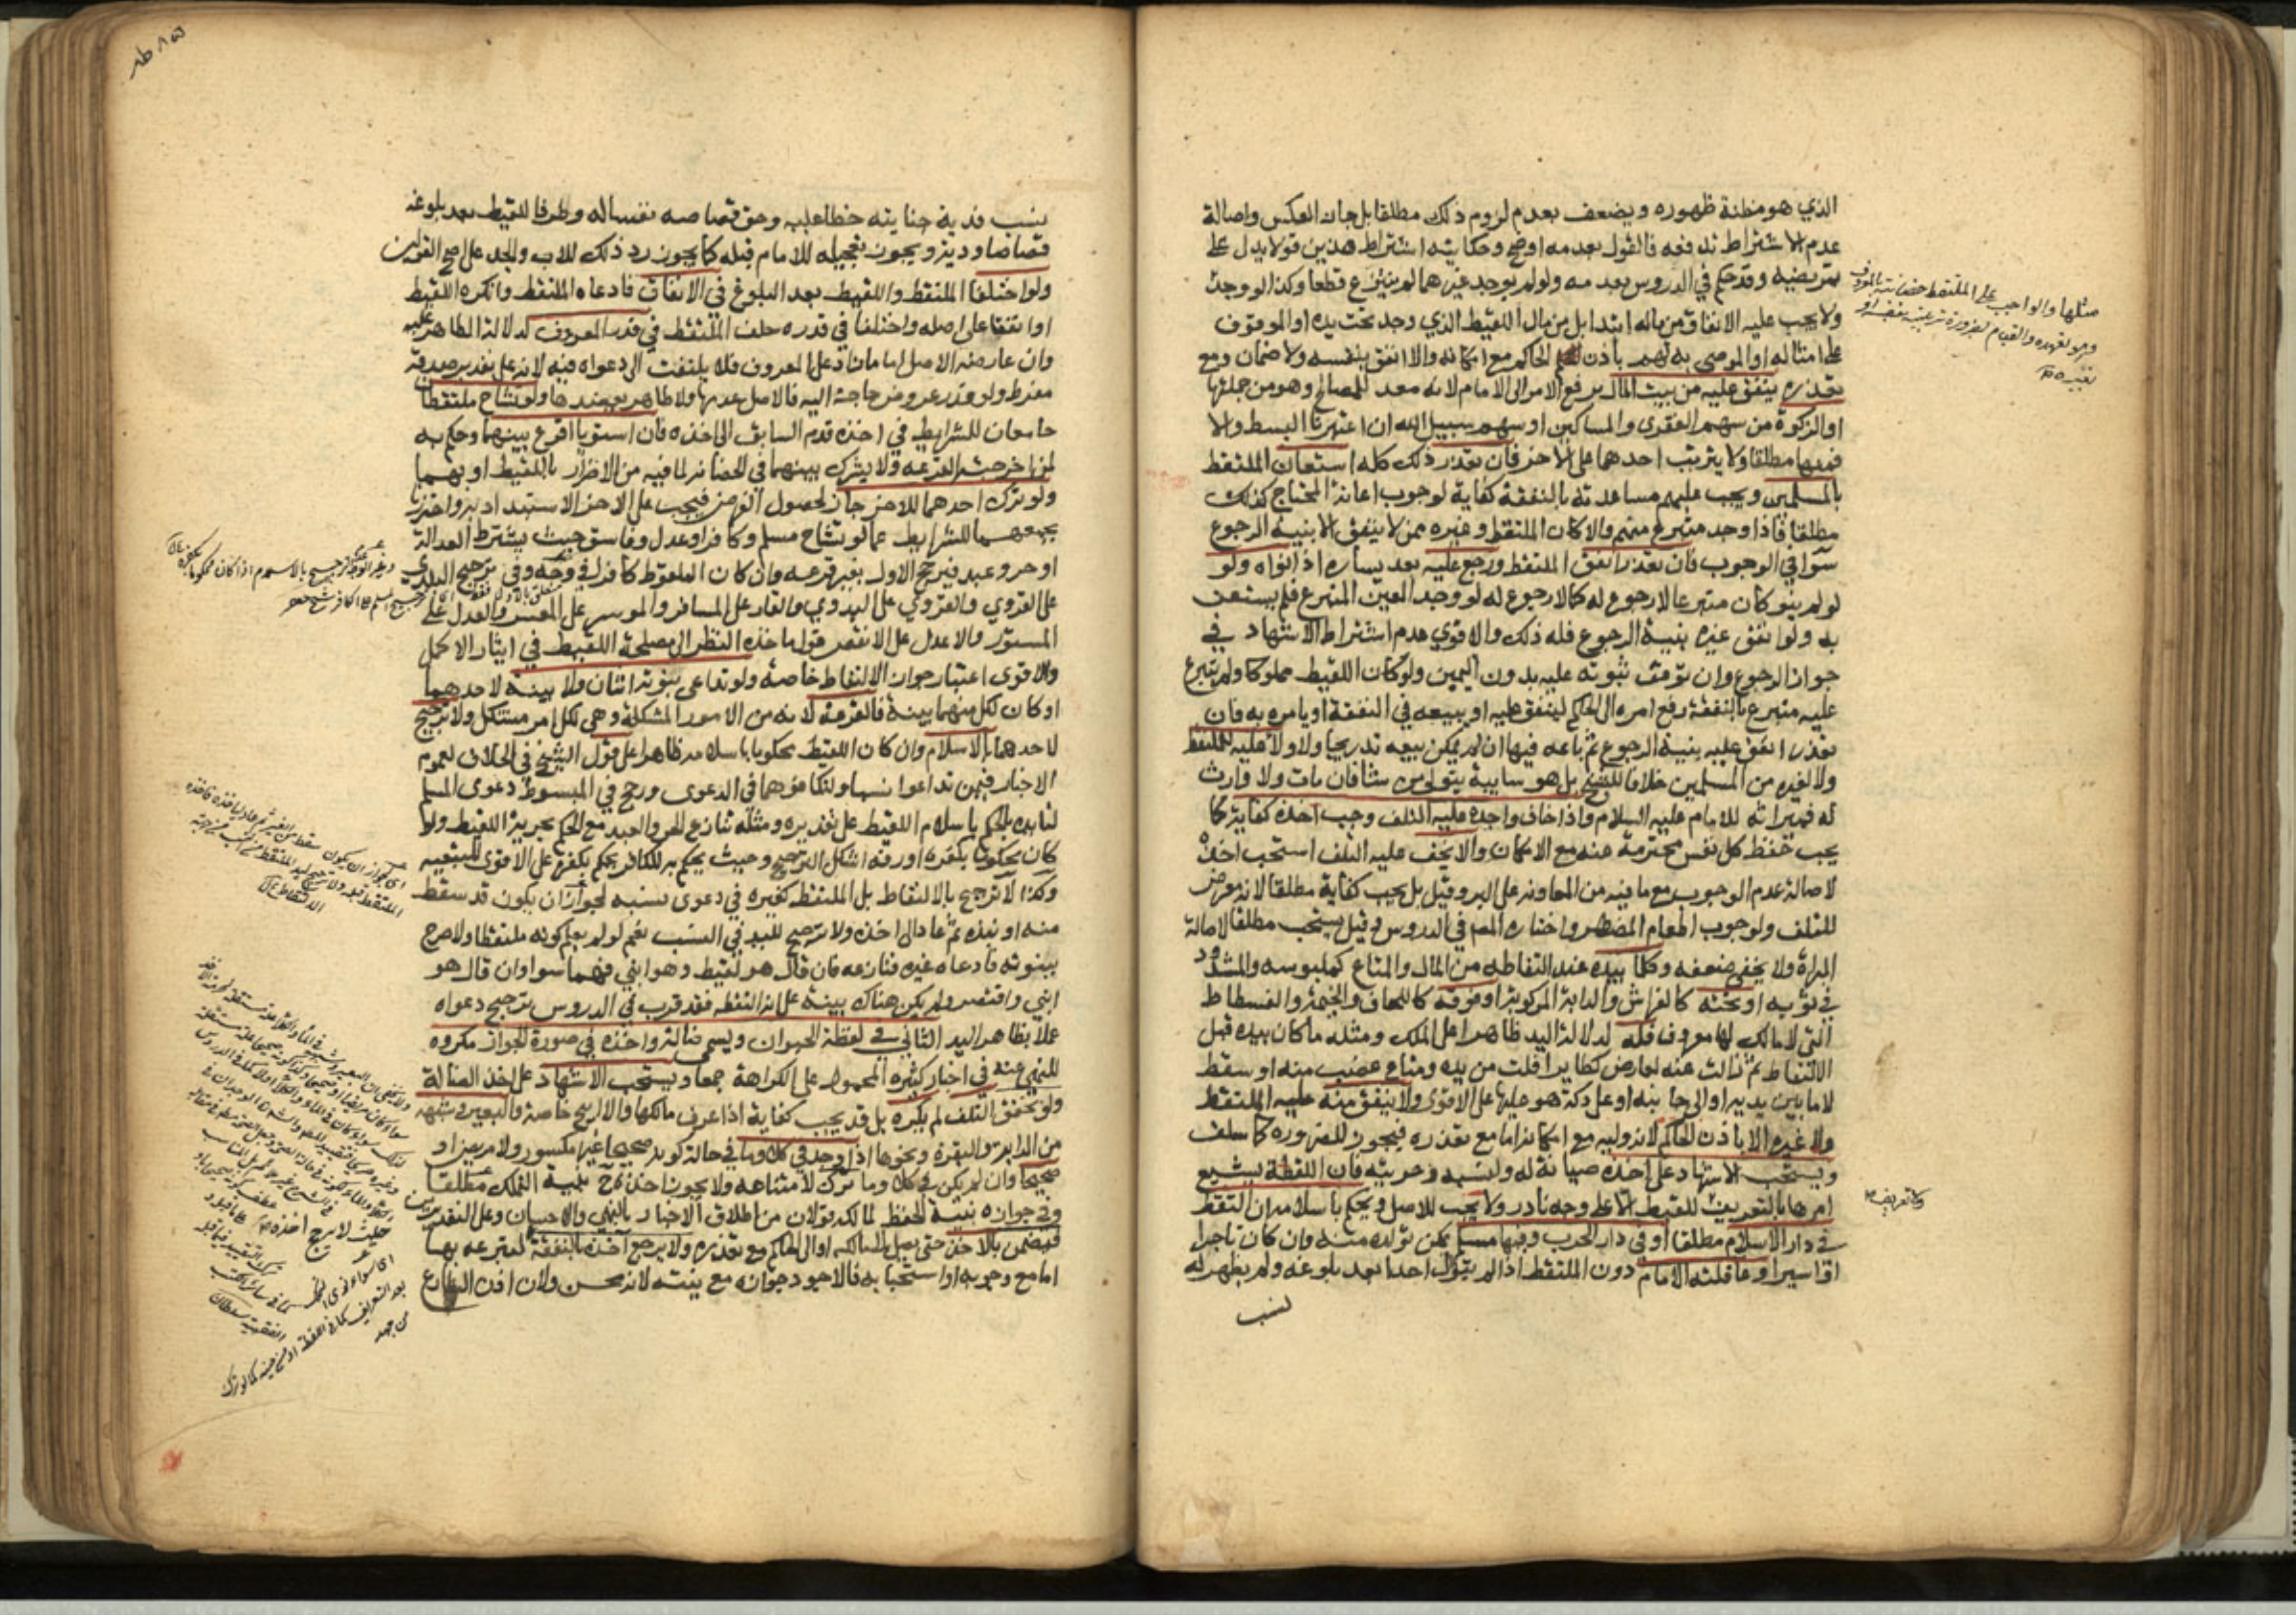 الذي هو مظنة ظهوره ويضعف بعدم لزوم ذلك مطلقا بل جاز العكس واصالة
عدم الاشتراط تدفعه فالقول بعدمه اوضح وحكايته اشتراط هذين قولا يدل على
تمريضه وقد حكم في الدروس بعدمه ولو لم يوجد غيرهما لم ينتزع قطعا وكذا لو وجد
مثلها والواجب على الملتقط حضانته بالمعروف
وهو تعهده والقيام بضرورة تربيته بنفسه او
بغيره
ولا يجب عليه الانفاق من ماله ابتدا بل من مال اللقيط الذي وجد تحت يده او الموقوف
على امثاله او الموصى به لهم باذن الحاكم مع امكانه والا انفق بنفسه ولا ضمان ومع
تعذره ينفق عليه من بيت المال برفع الامر الى الامام لانه معد للمصالح وهو من جملتها
او الزكوة من سهم الفقرى والمساكين او سهم سبيل الله ان اعتبرنا البسط والا
فمنها مطلقا ولا يترتب احدهما على الاخر فان تعذر ذلك كله استعان الملتقط
بالمسلمين ويجب عليهم مساعدته بالنفقة كفاية لوجوب اعانة المحتاج كذلك
مطلقا فاذا وجد متبرع منهم والا كان الملتقط وغيره ممن لا ينفق الا بنية الرجوع
سوا في الوجوب فان تعذر انفق الملتقط ورجع عليه بعد يساره اذا نواه ولو
لو لم ينو كان متبرعا لا رجوع له كما لا رجوع له لو وجد المعين المتبرع فلم يستعن
به ولو انفق غيره بنية الرجوع فله ذلك والاقوي عدم اشتراط الاشهاد في
جواز الرجوع وان توقف ثبوته عليه بدون اليمين ولو كان اللقيط مملوكا ولم يتبرع
عليه متبرع بالنفقة رفع امره الى الحاكم لينفق عليه او يبيعه في النفقة او يامره به فان
تعذر انفق عليه بنية الرجوع ثم باعه فيها ان لم يمكن بيعه تدريجا ولا ولا عليه للملتقط
ولا لغيره من المسلمين خلافا للشيخ بل هو سايبة يتولى من شا فان مات ولا وارث
له فميراثه للامام عليه السلام واذا خاف واجده عليه التلف وجب اخذه كفاية كما
يجب حفظ كل نفس محترمة عنه مع الامكان والا يخف عليه التلف استحب اخذه
لاصالة عدم الوجوب مع ما فيه من المعاونه على البر وقيل بل يجب كفاية مطلقا لانه معرض
للتلف ولوجوب اطعام المضطر واختاره المص في الدروس وقيل يستحب مطلقا لاصالة
البراة ولا يخفى ضعفه وكلما بيده عند التقاطه من المال والمتاع كملبوسه والمشدود
في ثوبه او تحته كالفراش والدابة المركوبة او فوقه كاللحاف والخيمة والفسطاط
التي لا مالك لها معروف فله لدلالة اليد ظاهرا على الملك ومثله ما كان بيده قبل
الالتقاط ثم زالت عنه لعارض كطاير افلت من يده ومتاع غصب منه او سقط
لا ما بين يديه او الى جانبه او على دكة هو عليها على الاقوى ولا ينفق منه عليه الملتقط
ولا غيره الا باذن الحاكم لانه وليه مع امكانه اما مع تعذره فيجوز للضرورة كما سلف
ويستحب الاشهاد على اخذه صيانة له ولنسبه وحريته فان اللقطة يشيع
امرها بالتعريف ولا تعريف للقيط الا على وجه نادر ولا يجب للاصل ويحكم باسلامه ان التقط
في دار الاسلام مطلقا او في دار الحرب وفيها مسلم يمكن تولده منه وان كان تاجرا
او اسيرا وعاقلته الامام دون الملتقط اذا لم يتوال احدا بعد بلوغه ولم يظهر له
نسب
نسب فدية جنايته خطا عليه وحق قصاصه نفسا له وطرفا للقيط بعد بلوغه
قصاصا ودية ويجوز تعجيله للامام قبله كما يجوز ذلك للاب والجد على اصح القولين
ولو اختلفا الملتقط واللقيط بعد البلوغ في الانفاق فادعاه الملتقط وانكره اللقيط
او اتفقا على اصله واختلفا في قدره حلف الملتقط في قدر المعروف لدلالة الظاهر عليه
وان عارضه الاصل اما ما زاد على المعروف فلا يلتفت الى دعواه فيه لانه على تقدير صدقه
مفرط ولو قدر عروض حاجة اليه فالاصل عدمها ولا ظاهر يعضدها ولو تشاح ملتقطان
جامعان للشرايط في اخذه قدم السابق الى اخذه فان استويا اقرع بينهما وحكم به
لمن اخرجته القرعه ولا يشرك بينهما في الحضانة لما فيه من الاضرار باللقيط او بهما
ولو ترك احدهما للاخر جاز لحصول الغرض فيجب على الاخر الاستبداد به واحترز
بجمعهما للشرايط عما لو تشاح مسلم وكافر او عدل وفاسق حيث يشترط العدالة
او حر وعبد فيرجح الاول بغير قرعه وان كان الملقوط كافرا في وجه وفي ترجيح البلدي
على القروي والقروي على البدوي والقار على المسافر والموسر على المعسر والعدل على
المستور والاعدل على الانقص قول ماخذه النظر الى مصلحة اللقيط في ايثار الاكمل
والاقوى اعتبار جواز الالتقاط خاصة ولو تداعى بنوته اثنان ولا بينة لاحدهما
او كان لكل منهما بينة فالقرعة لانه من الامور المشكلة وهي لكل امر مشكل ولا ترجيح
لاحدهما بالاسلام وان كان اللقيط محكوما باسلامه ظاهرا على قول الشيخ في الخلاف لعموم
الاخبار فيمن تداعوا نسبا ولتكافؤهما في الدعوى ورجح في المبسوط دعوى المسلم
لتايده بالحكم باسلام اللقيط على تقديره ومثله تنازع الحر والعبد مع الحكم بحرية اللقيط ولو
كان محكوما بكفره او رقه اشكل الترجيح وحيث يحكم به للكافر يحكم بكفره على الاقوى للتبعية
وكذا لا ترجيح بالالتقاط بل الملتقط كغيره في دعوى نسبه لجواز ان يكون قد سقط
منه او نبذه ثم عاد الى اخذه ولا ترجيح لليد في النسب نعم لو لم يعلم كونه ملتقطا ولا صرح
ببنوته فادعاه غيره فنازعه فان قال هو لقيط وهو ابني فهما سوا وان قال هو
ابني واقتصر ولم يكن هناك بينة على انه التقطه فقد قرب في الدروس ترجيح دعواه
عملا بظاهر اليد الثاني في لقطة الحيوان ويسمى ضالة واخذه في صورة الجواز مكروه
للنهي عنه في اخبار كثيره المحمول على الكراهة جمعا ويستحب الاشهاد على اخذ الضالة
ولو تحقق التلف لم يكره بل قد يجب كفاية اذا عرف مالكها والا ابيح خاصة والبعير وشبهه
من الدابة والبقرة ونحوها اذا وجد في كلا وما في حالة كونه صحيحا غير مكسور ولا مريض او
صحيحا وان لم يكن في كلا وما ترك لامتناعه ولا يجوز اخذه ح بنية التملك مطلقا
وفي جوازه بنية الحفظ لمالكه قولان من اطلاق الاخبار بالنهي والاحسان وعلى التقديرين
فيضمن بالاخذ حتى يصل الى مالكه او الى الحاكم مع تعذره ولا يرجع اخذه بالنفقة لتبرعه بها
اما مع وجوبه او استحبابه فالاجود جوازه مع نيته لانه محسن ولان اذن الشارع